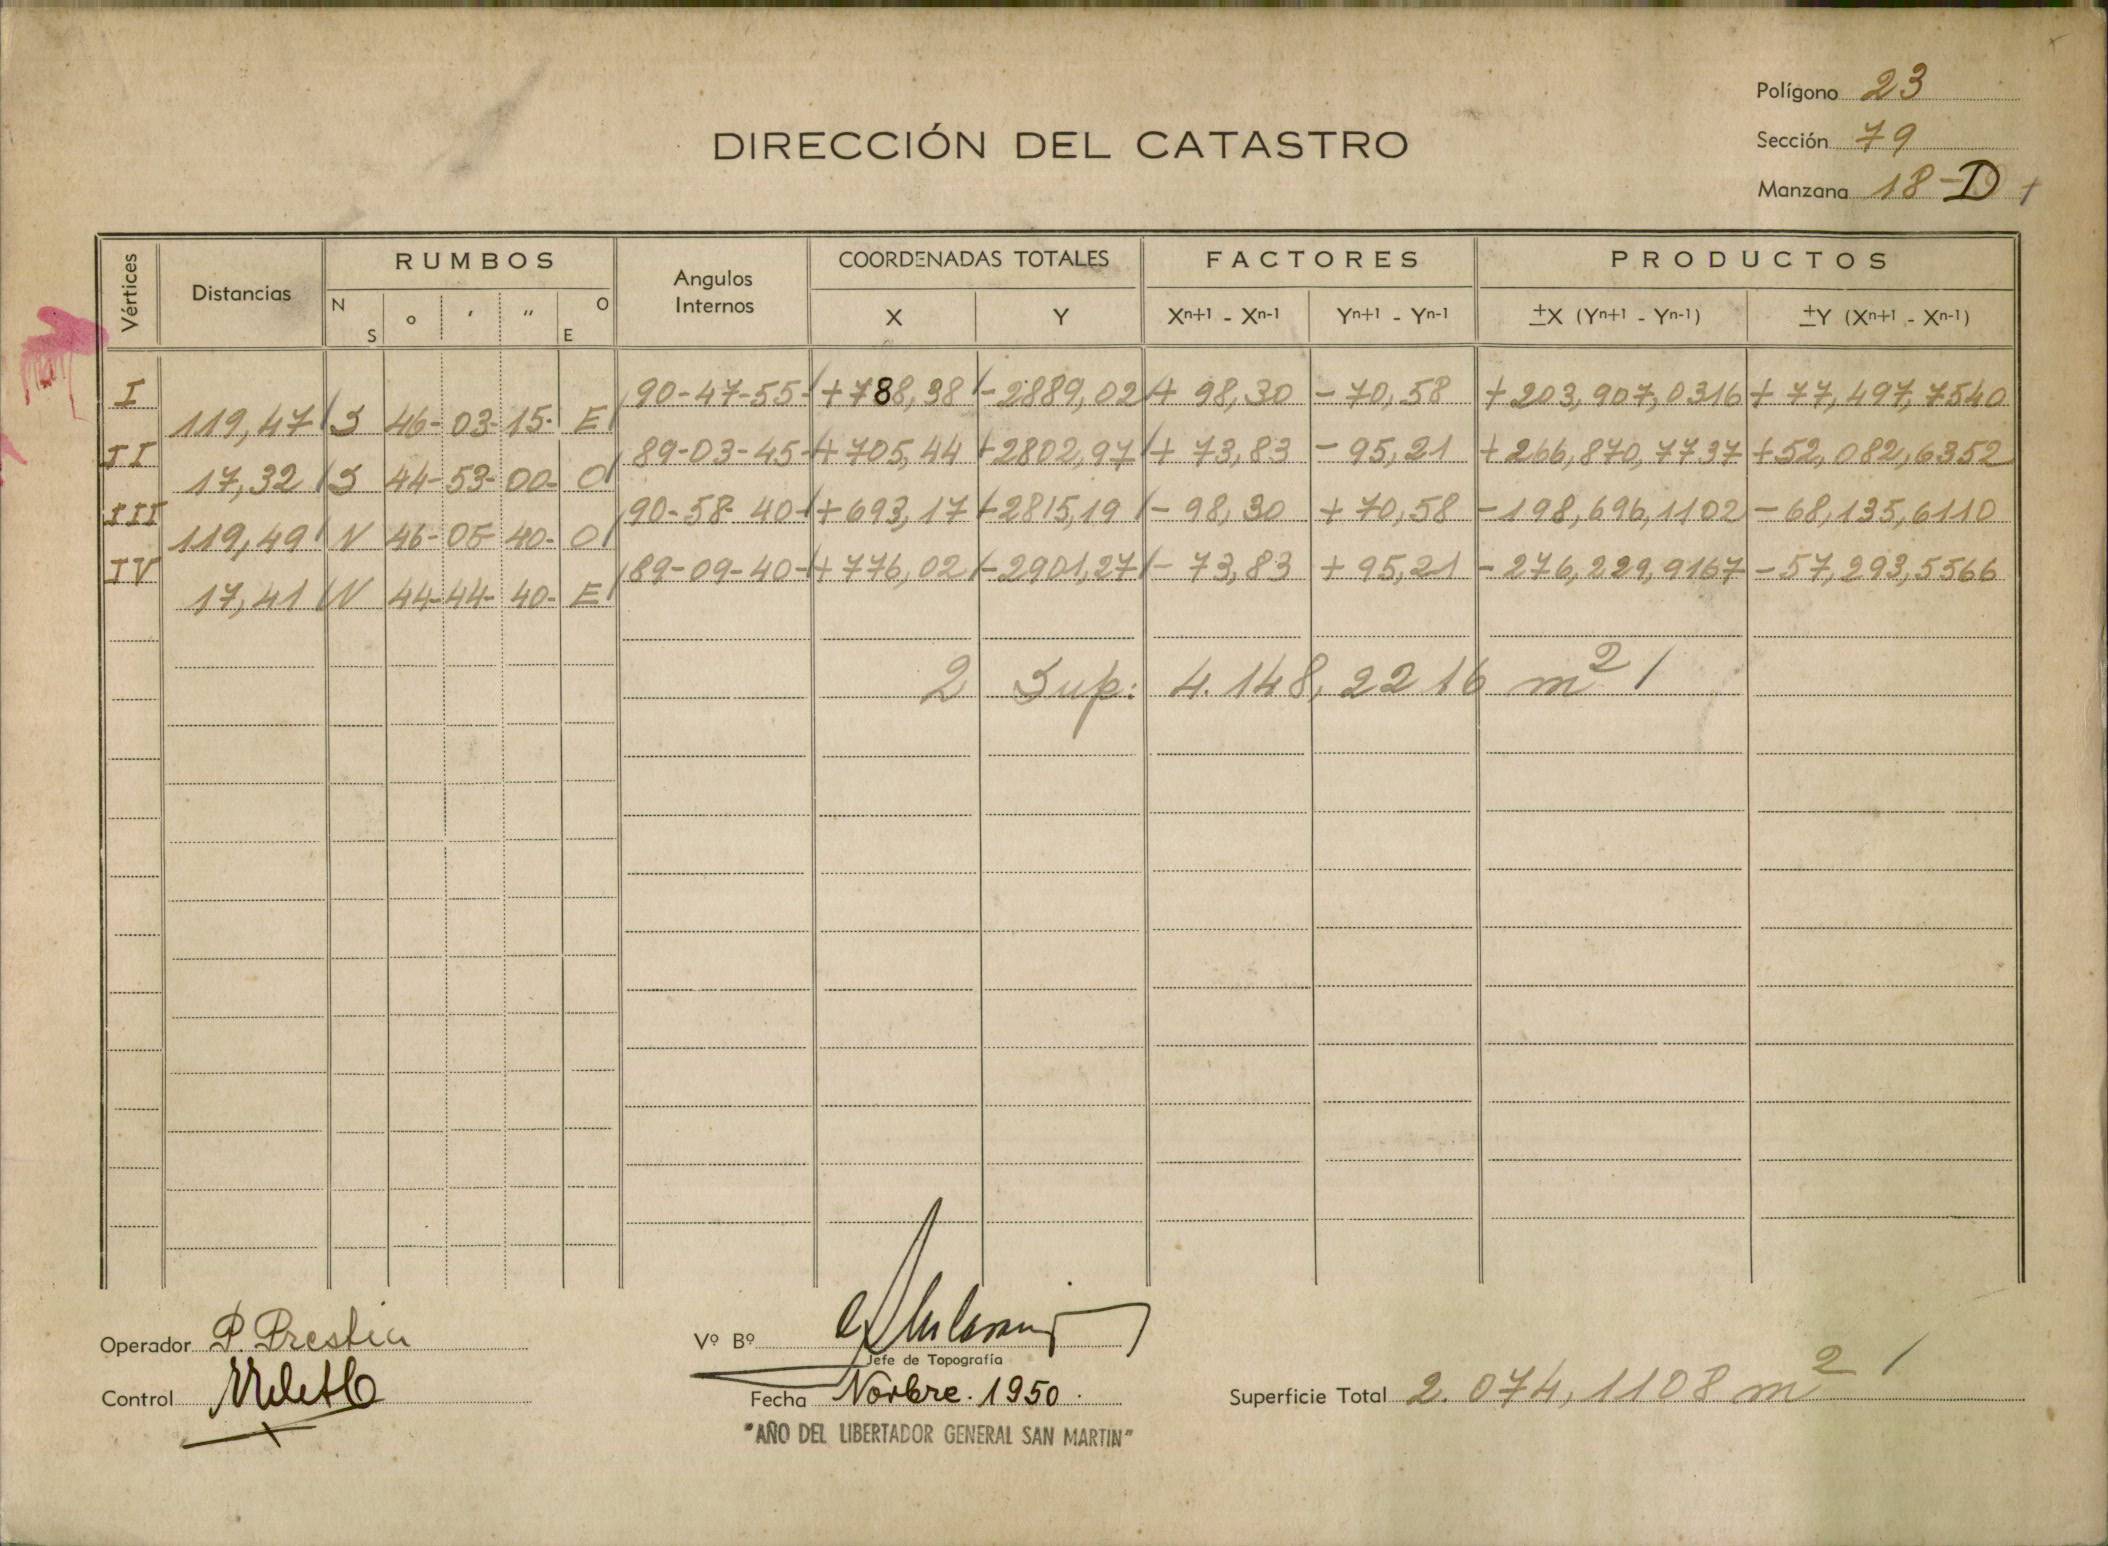 Polígono 23
DIRECCIÓN DEL CATASTRO
Sección 79
Manzana 18-D
Vértices Distancias RUMBOS Angulos Internos COORDENADAS TOTALES FACTORES PRODUCTOS
N S o ' " O E X Y Xn+1 - Xn-1 Yn+1 - Yn-1 ±X (Yn+1 - Yn-1) ±Y (Xn+1 - Xn-1)
I 90-47-55- +788,38 -2889,02 + 98,30 - 70,58 +203,907,0316 + 77,497,7540
119,47 S 46- 03- 15- E
II 89-03-45- + 705,44 -2802,97 + 73,83 - 95,21 +266,870,7737 +52,082,6352
17,32 S 44- 53- 00- O
III 90-58- 40- +693,17 -2815,19 - 98,30 + 70,58 -198,696,1102 -68,135,6110
119,49 N 46- 40- O
IV 89-09-40- +776,02 -2901,27 - 73,83 + 95,21 - 276,229,9167 -57,293,5566
17,41 N 44- 44- 40- E
2 Sup: 4.148,2216 m2
Operador P. Prestia
Vº Bº
Jefe de Topografía
Control
Fecha Novbre. 1950.
Superficie Total 2.074,1108 m2
"AÑO DEL LIBERTADOR GENERAL SAN MARTIN"